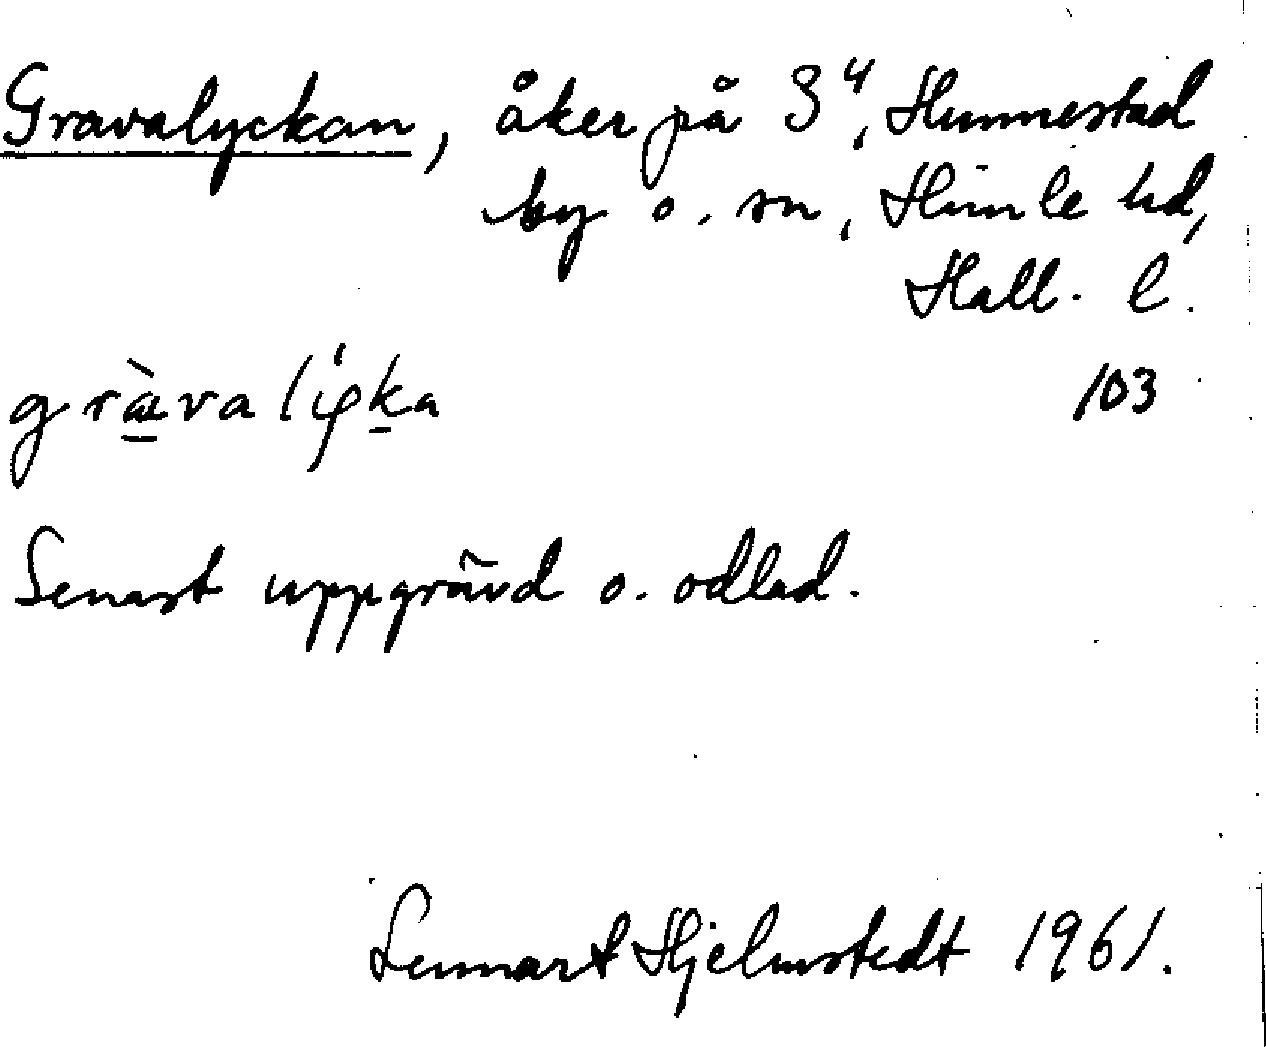 Gravalyckan, åker på 3⁴, Hunnestad
by o. sn, Himle hd,
Hall. l.
103
Senast uppgrävd o. odlad.
Lennart Hjelmstedt 1961.